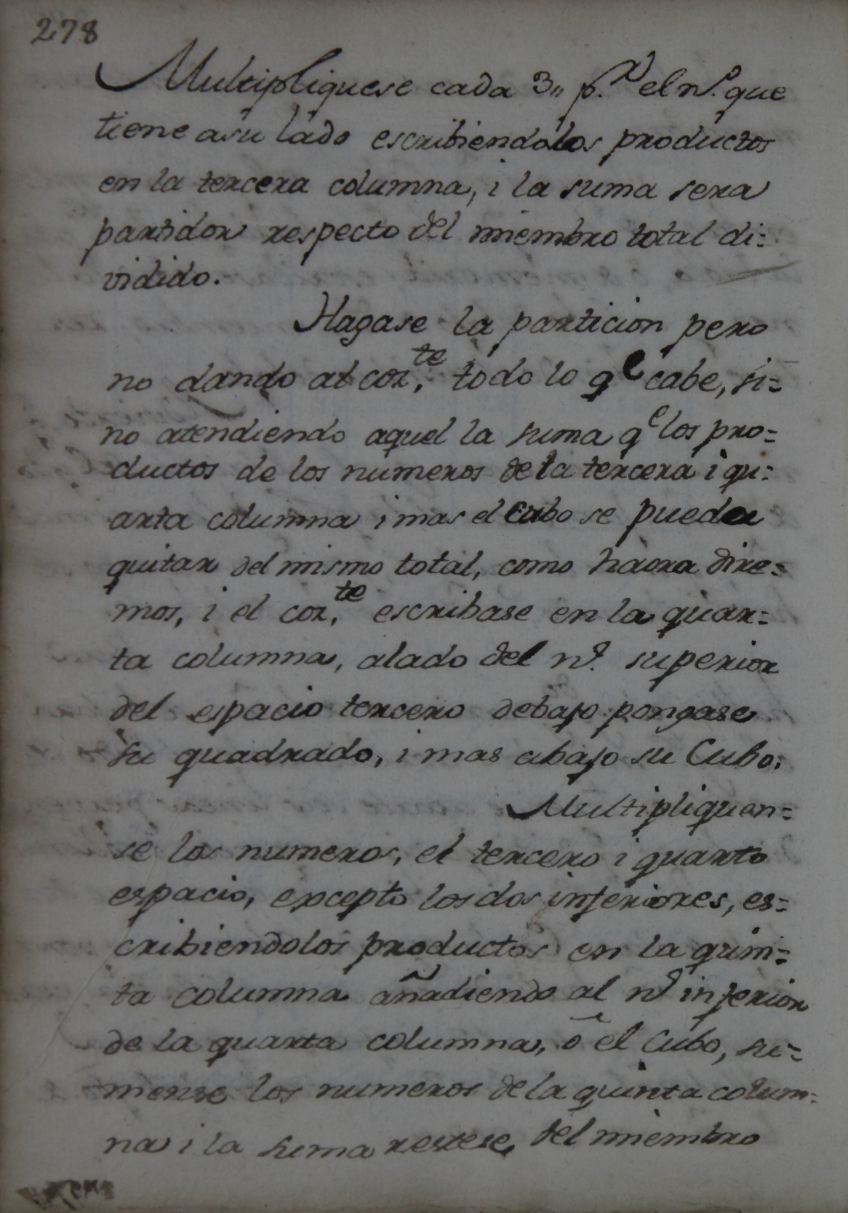 278
Multipliquese cada 3,, p.r el n.o que
tiene asu lado escribiendolos productos
en la tercera columna, i la suma sera
partidor respecto del miembro total di=
vidido.
Hagase la particion pero
no dando al coz.te, todo lo q e cabe, si=
no atendiendo aquel la suma q e los pro=
ductos de los numeros de la tercera i qu=
arta columna i mas el cubo se pueda
quitar del mismo total, como haora dire=
mos, i el coz.te escribase en la quar=
ta columna, alado del n.o superior
del espacio tercero debajo pongase
su quadrado, i mas abajo su Cubo.
Multipliquen=
se los numeros, el tercero i quarto
espacio, excepto los dos inferiores, es=
cribiendolos productos en la quin=
ta columna añadiendo al n.o inferior
de la quarta columna, ó el Cubo, su=
mense los numeros de la quinta colum=
na i la suma restese del miembro